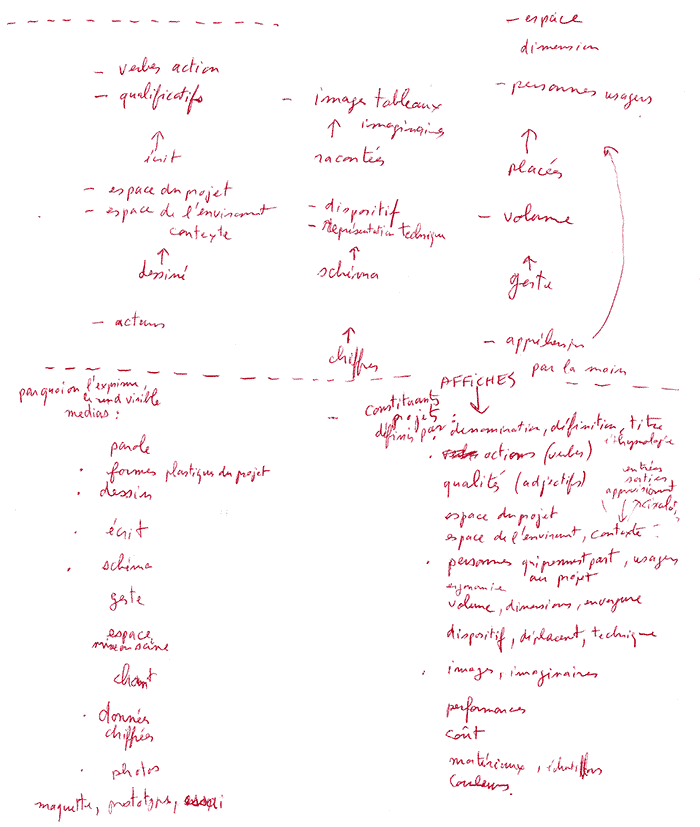 - espace
dimension
- personnes usagers
- verbes action
- qualificatifs
- images tableaux
imaginaires
écrit
racontées
placées
- espace du projet
- espace de l'enviromant
contexte
- dispositif
- Représentation technique
- volume
dessiné
schéma
geste
- acteurs
chiffres
- appréhension
par la main
par quoi on l'exprime,
le rend visible
medias :
parole
. formes plastiques du projet
. dessin
. écrit
. schéma
geste
espace
mise en scène
chant
. données
chiffrées
. photos
maquette, prototype,
AFFICHES
- constituants
projets :
définis par : denomination, définition, titre
éthymologie
. actions (verbes)
qualités (adjectifs)
entrées
sorties
espace du projet
espace de l'enviromant, contexte :
. personnes qui prennent part, usagers
au projet
ergonomie
volume, dimensions, envergure
dispositif, déplacent, technique
. images, imaginaires
performances
coût
matériaux, échantillons
couleurs.